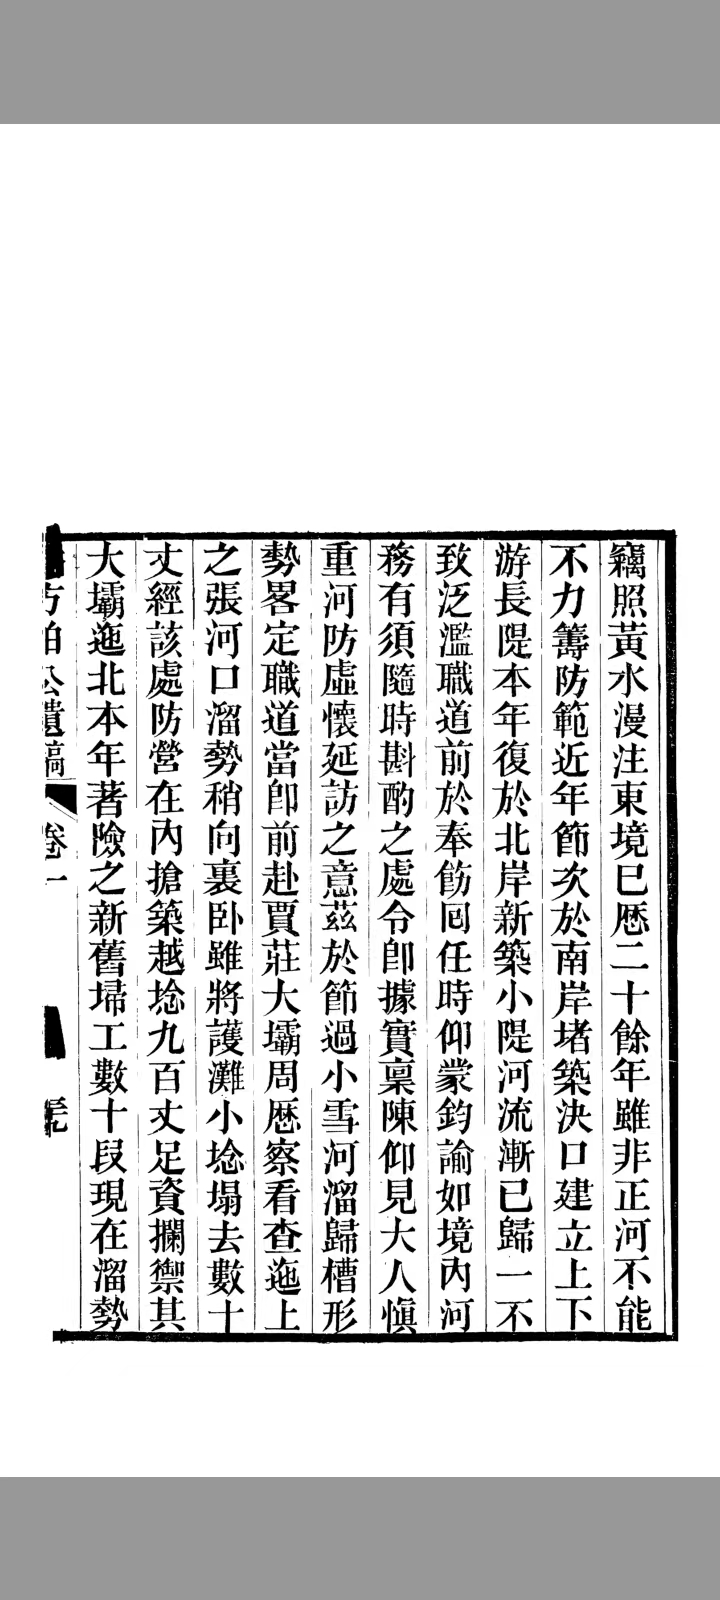 竊照黃水漫注東境已歷二十餘年雖非正河不能
不力籌防範近年節次於南岸堵築決口建立上下
游長隄本年復於北岸新築小隄河流漸已歸一不
致泛濫職道前於奉飭囘任時仰蒙鈞諭如境內河
務有須隨時斟酌之處令卽據實稟陳仰見大人慎
重河防虛懷延訪之意茲於節過小雪河溜歸槽形
勢畧定職道當卽前赴賈莊大壩周歷察看查迤上
之張河口溜勢稍向裏卧雖將護灘小埝塌去數十
丈經該處防營在內搶築越埝九百丈足資攔禦其
大壩迤北本年著險之新舊埽工數十段現在溜勢
方伯公遺稿 卷一